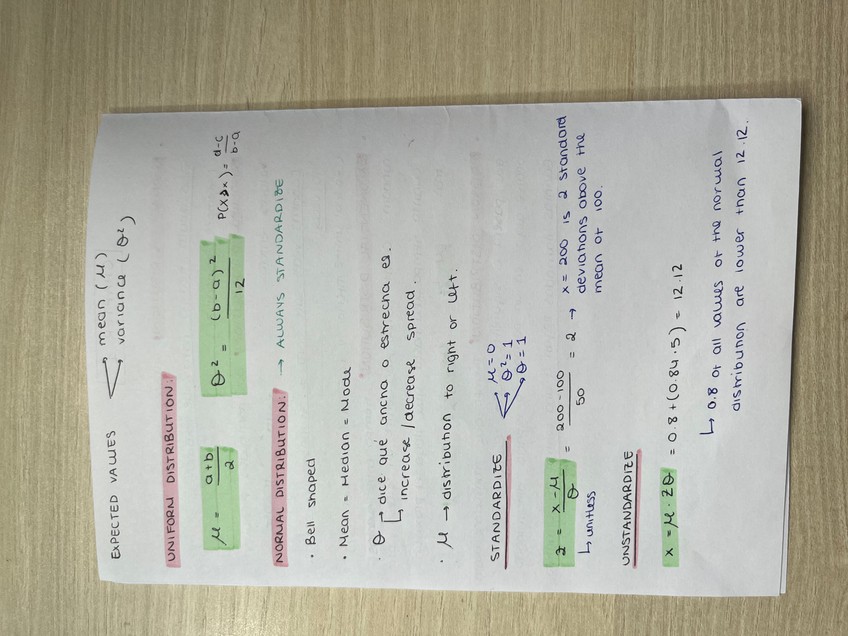 EXPECTED VALUES
mean (μ)
variance (θ²)
UNIFORM DISTRIBUTION:
μ = a+b / 2
θ² = (b-a)² / 12
d-c / b-a
NORMAL DISTRIBUTION: → ALWAYS STANDARDIZE
· Bell shaped
· Mean = Median = Mode
· θ → dice qué ancha o estrecha es.
↳ increase / decrease spread.
· μ → distribution to right or left.
STANDARDIZE
μ=0
θ²=1
θ=1
z = x-μ / θ = 200-100 / 50 = 2 → x = 200 is 2 standard
deviations above the
mean of 100.
↳ unitless
UNSTANDARDIZE
x = μ · zθ = 0.8+(0.84·5) = 12.12
↳ 0.8 of all values of the normal
distribution are lower than 12.12.